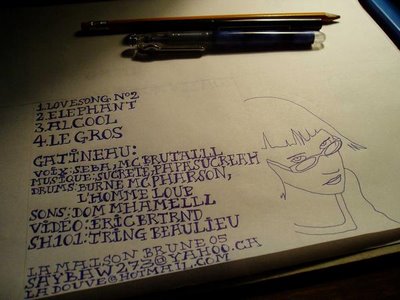 1. LOVESONG Nº2
2. ELEPHANT
3. ALCOOL
4. LE GROS
GATINEAU:
VOIX: SEBA, MC BRUTALLL
MUSIQUE: SUCRETE, PAPASUCREAH
DRUMS: BURNE MCPHARSON,
L'HOMME LOUP
SONS: DOM MHAMELLL
VIDÉO: ERIC BTRTND
SH101: TRING BEAULIEU
LA MAISON BRUNE 05
SAYBAW273@YAHOO.CA
LADOUVE@HOTMAIL.COM